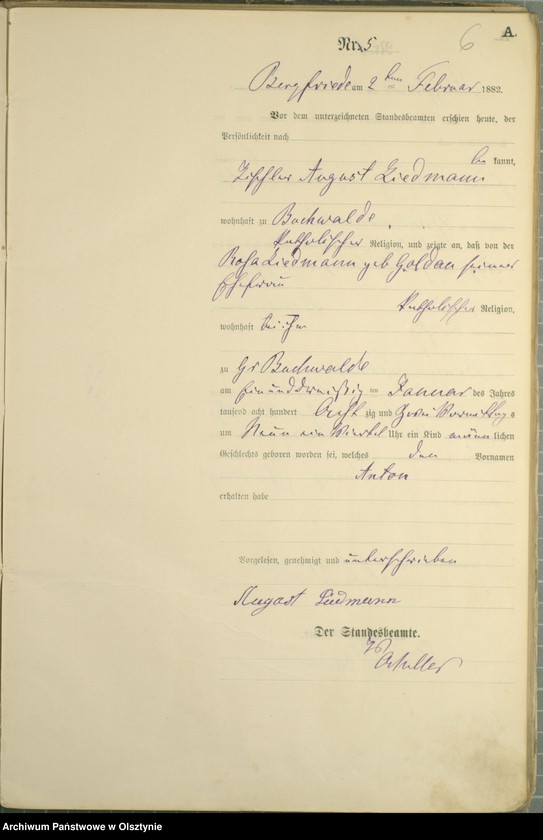 6
A.
Nr. 5
Bergfriede am 2ten Februar 1882.
Vor dem unterzeichneten Standesbeamten erschien heute, der
Persönlichkeit nach
be kannt,
Tischler August Liedmann
wohnhaft zu Buchwalde,
katholischer Religion, und zeigte an, daß von der
Rosa Liedmann geb Goldau seiner
Ehefrau
katholischer Religion,
wohnhaft bei ihm
zu Gr Buchwalde
am einunddreißigten Januar des Jahres
tausend acht hundert Acht zig und Zwei Vormittags
um Neun ein Viertel Uhr ein Kind männlichen
Geschlechts geboren worden sei, welches den Vornamen
Anton
erhalten habe
Vorgelesen, genehmigt und unterschrieben
August Liedmann
Der Standesbeamte.
Archiwum Państwowe w Olsztynie